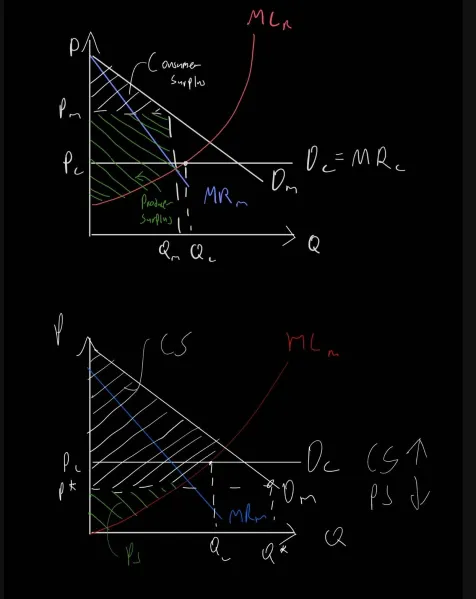 MC_m
P
Consumer
Surplus
P_m
P_c
D_c = MR_c
D_m
MR_m
Producer
Surplus
Q_m Q_c Q
P
CS
MC_m
P_c
D_c CS ↑
P*
D_m PS ↓
MR_m
PS
Q_c Q* Q